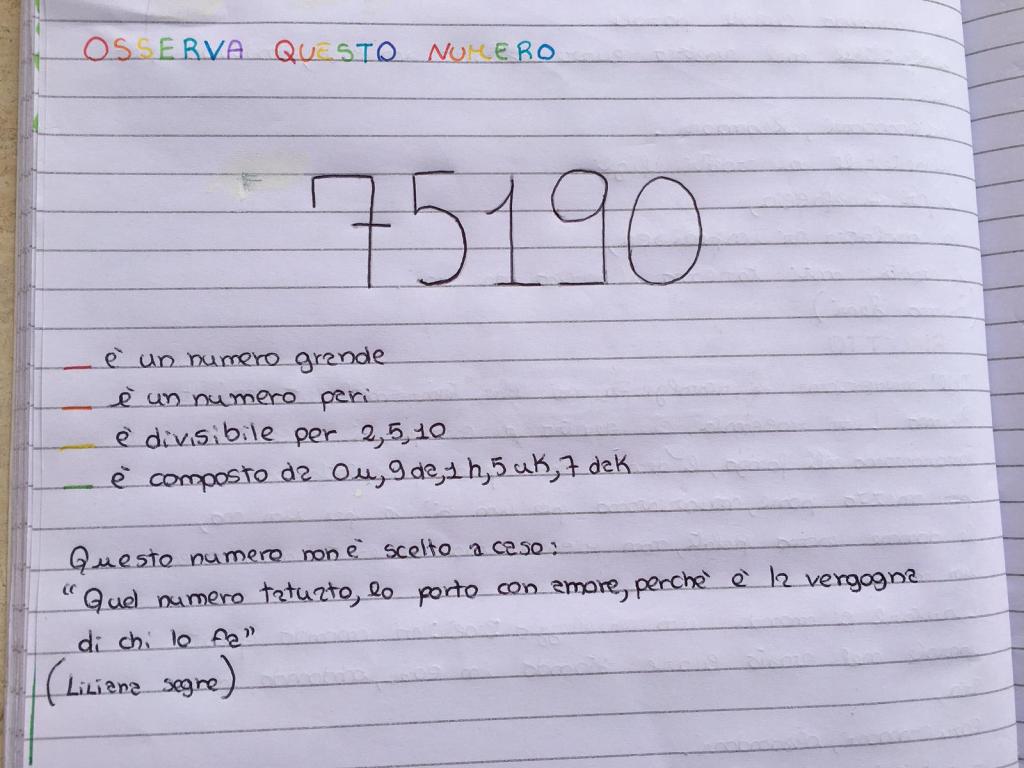 OSSERVA QUESTO NUMERO
75190
è un numero grande
è un numero pari
è divisibile per 2,5,10
è composto da 0u, 9da, 1h, 5uK, 7daK
Questo numero non è scelto a caso:
"Quel numero tatuato, lo porto con amore, perchè è la vergogna
di chi lo fa"
(Liliana segre)